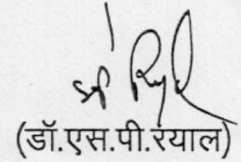 (डॉ.एस.पी.रयाल)